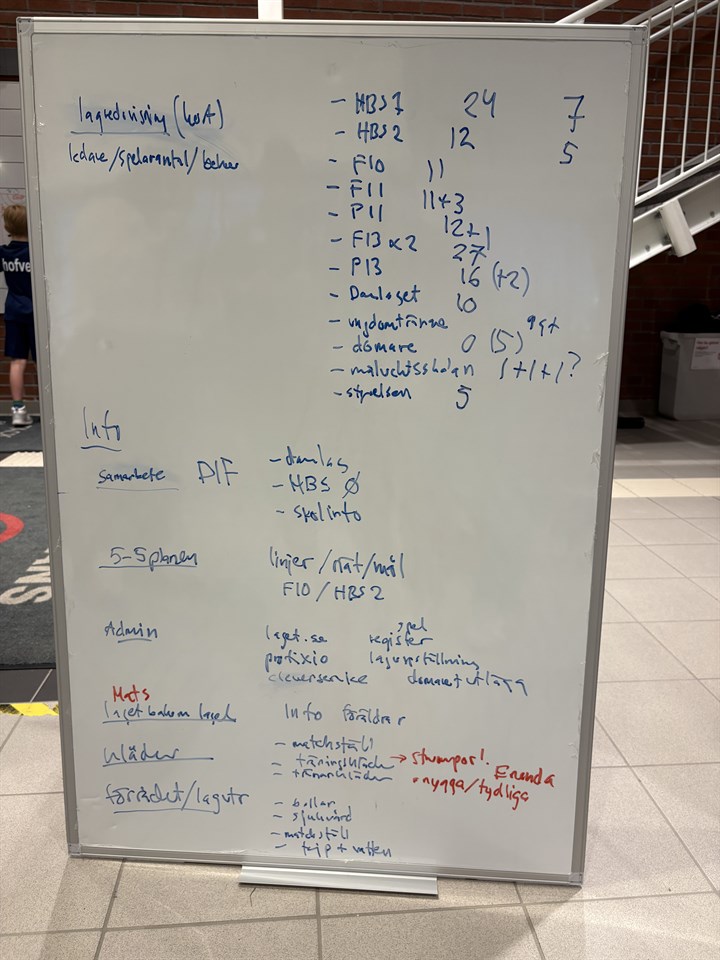 lagredovisning (kort)
ledare/spelarantal/behov
- HBS1 24 7
- HBS2 12 5
- F10 11
- F11 11+3
- P11 12+1
- F13 x2 27
- P13 16 (+2)
- Damlaget 10
- ungdomtränare
- domare 0 (5)
- målvaktsskolan 1+1+1?
- styrelsen 5
Info
samarbete DIF - damlag
- HBS Ø
- skolinfo
5-5 planen linjer/nät/mål
F10/HBS2
Admin laget.se spel register
profixio laguppställning
cleverservice domare utlägg
Mats
laget bakom laget Info föräldrar
Kläder - matchställ
- träningskläder → strumpor!
- tränarkläder • nygga/tydliga
Enanda
förrådet/lagutr - bollar
- sjukvård
- matchställ
- tejp + vatten
hofve